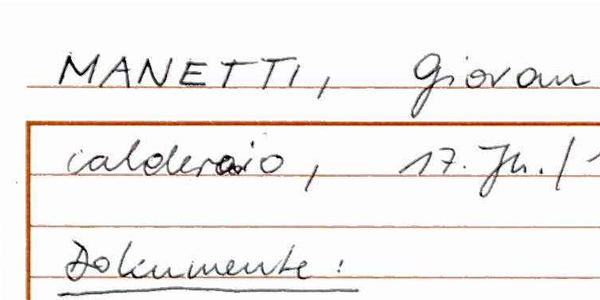 MANETTI, Giovan
calderaio, 17. Jh./1
Dokumente: